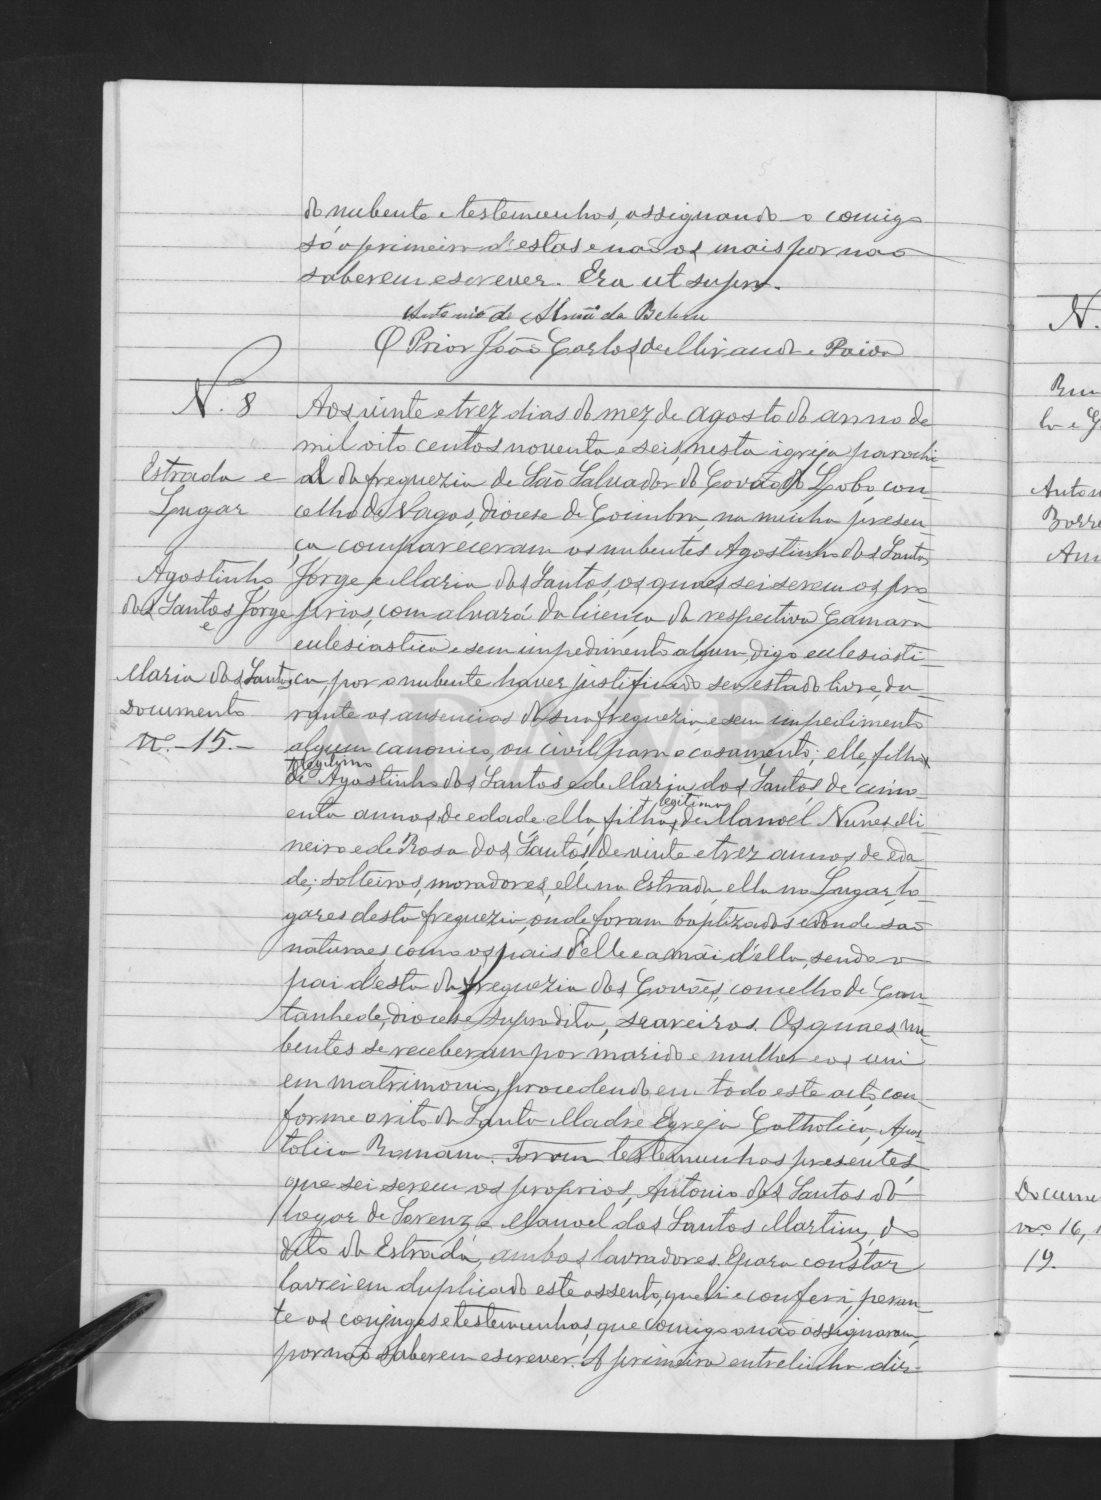 do nubente e testemunhos, assignando-o comigo
só o primeiro d'estas e não os mais por não
saberem escrever. Era ut supra.
Antonio de Almeida
O Prior João Carlos de Miranda e Paiva
N. 8
Estrada e
Lugar
Agostinho
dos Santos Jorge
e
Maria dos Santos
Documento
nº. - 15. -
Aos vinte e trez dias do mez de agosto do anno de
mil oito centos noventa e seis, nesta igreja parochi-
al da freguezia de São Salvador do Covão do Lobo, con-
celho de Vagos, diocese de Coimbra, na minha presen-
ça compareceram os nubentes Agostinho dos Santos
Jorge e Maria dos Santos, os quaes sei serem os pro-
prios, com alvará da licença da respectiva Camara
eclesiastica e sem impedimento algum, digo eclesiasti-
ca, por o nubente haver justificado seu estado livre, du-
rante as ausencias da sua freguezia, e sem impedimento
algum canonico, ou civil para o casamento; elle, filho
legitimo
de Agostinho dos Santos e de Maria dos Santos de cinco-
legitima
enta annos de edade ella, filha de Manoel Nunes Mi-
neiro e de Rosa dos Santos, de vinte e trez annos de eda-
de; solteiros, moradores, elle na Estrada, ella no Lugar, lo-
gares desta freguezia, onde foram baptizados e donde são
naturaes como os pais d'elle e a mãi d'ella, sendo o
pai d'esta da freguezia dos Covões, concelho de Can-
tanhede, diocese supradita, seareiros. Os quaes nu-
bentes se receberam por marido e mulher e os uni
em matrimonio, procedendo em todo este acto, con-
forme o rito da Santa Madre Egreja Catholica, Apos-
tolica Romana. Foram testemunhas presentes,
que sei serem os proprios, Antonio dos Santos do
logar de Lorenz, e Manoel dos Santos Martins, do
dito da Estrada, ambos lavradores. E para constar
lavrei em duplicado este assento, que li e conferi, peran-
te os conjuges e testemunhas, que comigo o não assignaram,
por não saberem escrever. A primeira entrelinha diz-
N.
lo e
Anton
Borre
Docume
nos. 16, 1
19.